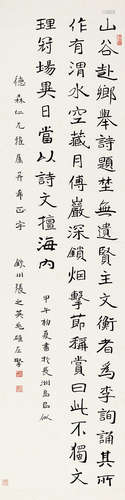 山谷赴鄉舉詩題埜無遺賢主文衡者為李詢誦其所
作有渭水空藏月傅巖深鎖烟擊節稱賞曰此不獨文
理冠場異日當以詩文擅海內
甲午初夏書於長洲島居似
德森仁兄雅屬并希正字
川張之英左擘